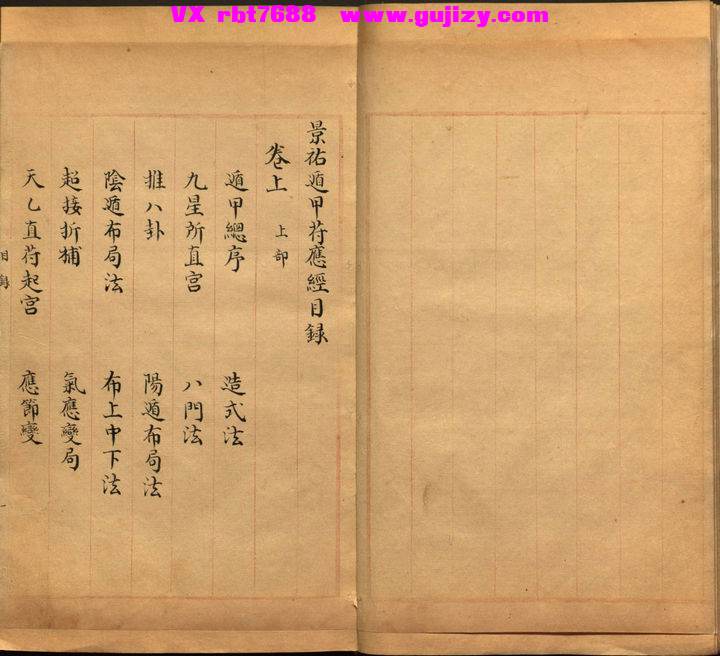 VX rbt7688 www.gujizy.com
景祐遁甲苻應經目録
卷上 上部
遁甲總序 造式法
九星所直宮 八門法
推八卦 陽遁布局法
陰遁布局法 布上中下法
超接折補 氣應變局
天乙直苻起宮 應節變
目録